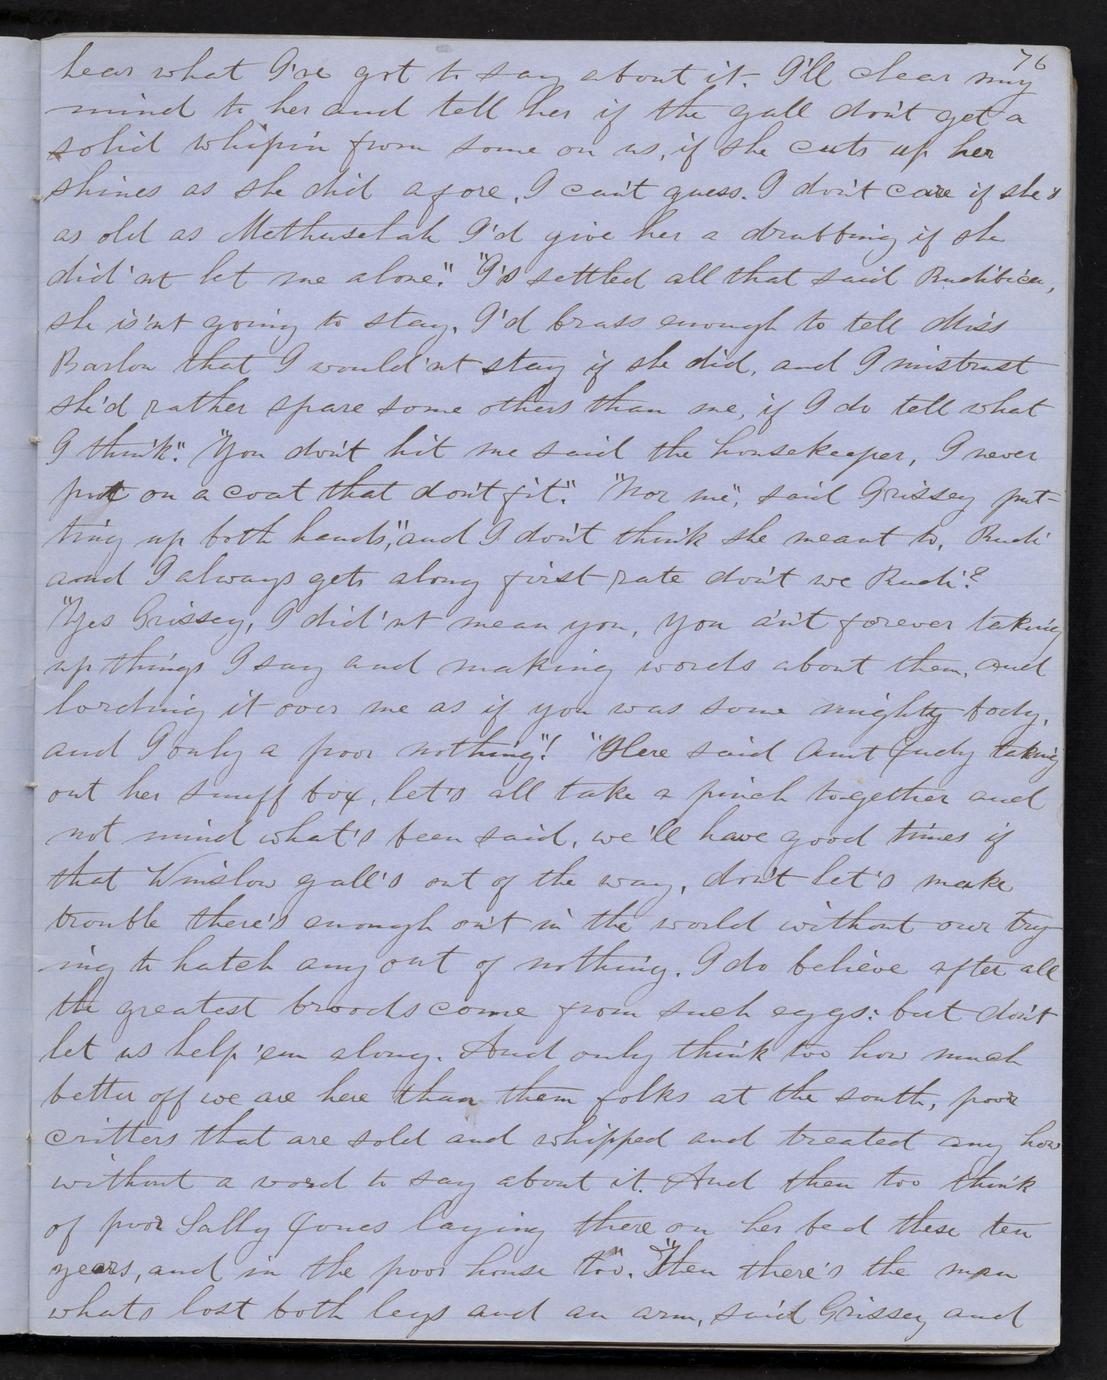 76
hear what I've got to say about it. I'll clear my
mind to her and tell her if the gall don't get a
solid whipin from some on us, if she cuts up her
shines as she did afore, I can't guess. I don't care if she's
as old as Methuselah I'd give her a drubbing if she
did'nt let me alone." "I's settled all that said Rudibica,
she is'nt going to stay. I'd brass enough to tell Miss
Barlow that I would'nt stay if she did, and I mistrust
she'd rather spare some others than me, if I do tell what
I think." "You don't hit me said the housekeeper, I never
put on a coat that don't fit." "Nor me", said Grissey put-
ting up both hands, "and I don't think she meant to, Rudi
and I always gets along first rate don't we Rudi'?
"Yes Grissey, I did'nt mean you, you ain't forever taking
up things I say and making words about them, and
lording it over me as if you was some mighty body,
and I only a poor nothing"! "Here said Aunt Judy taking
out her snuff box, let's all take a pinch together and
not mind what's been said, we'll have good times if
that Winslow gall's out of the way, don't let's make
trouble there's enough on't in the world without our try
ing to hatch any out of nothing. I do believe after all
the greatest broods come from such eggs: but don't
let us help 'em along. And only think too how much
better off we are here than them folks at the south, poor
critters that are sold and whipped and treated any how
without a word to say about it. And then too think
of poor Sally Jones laying there on her bed these ten
years, and in the poor house too". "Then there's the man
whats lost both legs and an arm, said Grissey and